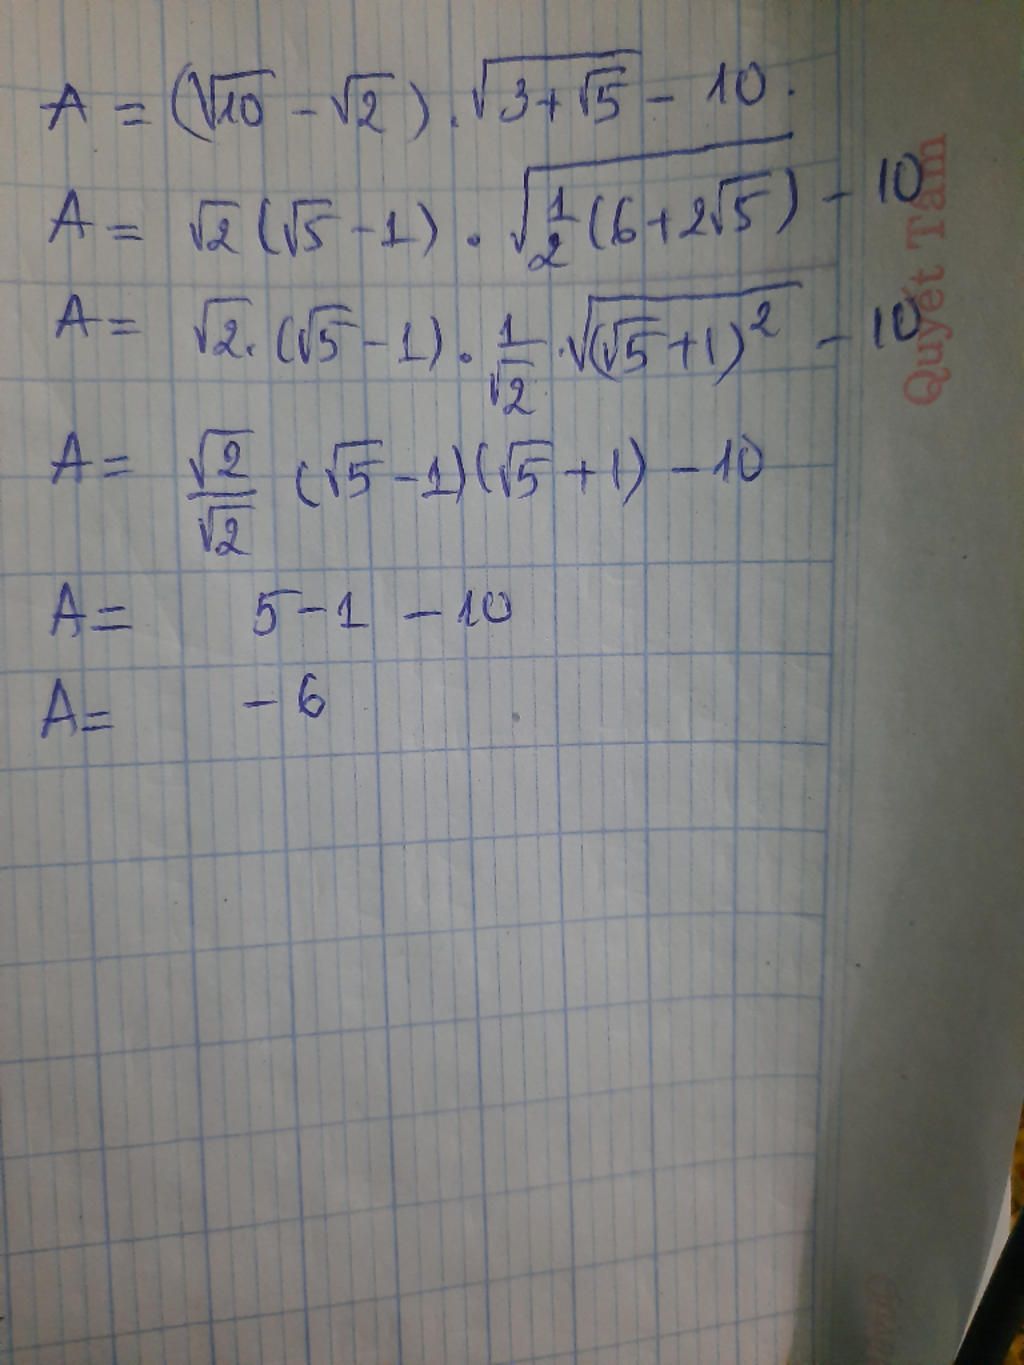 A = (√10 - √2) . √(3+√5) - 10.
A = √2 (√5 - 1) . √(1/2 (6 + 2√5)) - 10
A = √2 . (√5 - 1) . 1/√2 . √((√5 + 1)²) - 10
A = √2/√2 (√5 - 1)(√5 + 1) - 10
A = 5 - 1 - 10
A = - 6
Quyết Tâm